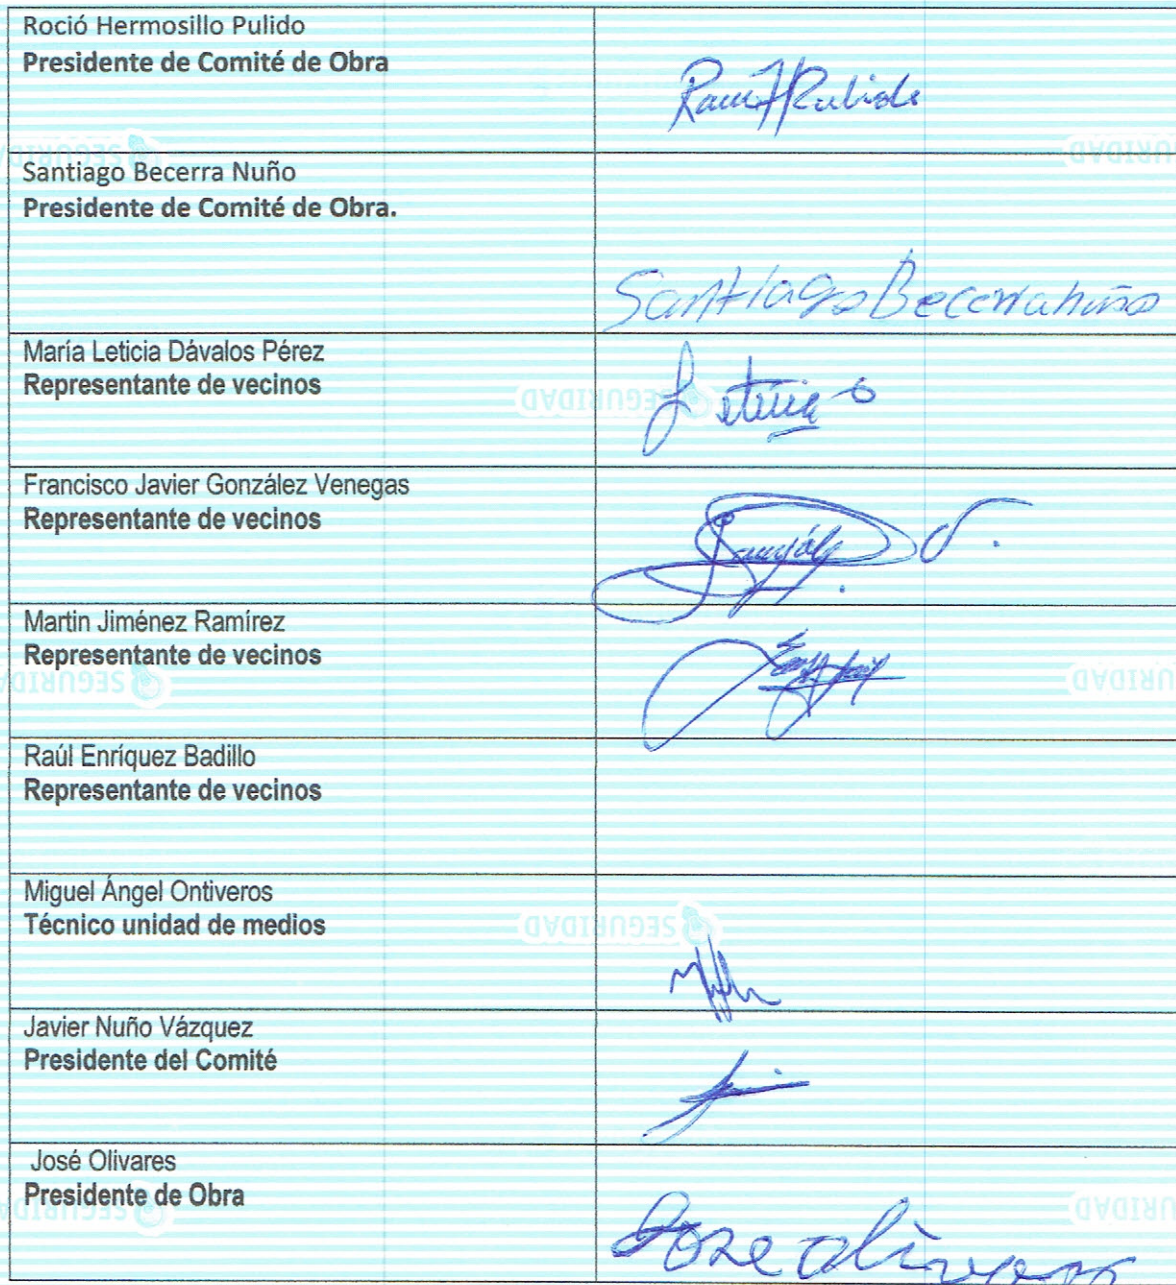 Roció Hermosillo Pulido
Presidente de Comité de Obra
Pulido
Santiago Becerra Nuño
Presidente de Comité de Obra.
Santiago Becerra nuño
María Leticia Dávalos Pérez
Representante de vecinos
Leticia
Francisco Javier González Venegas
Representante de vecinos
Martin Jiménez Ramírez
Representante de vecinos
Raúl Enríquez Badillo
Representante de vecinos
Miguel Ángel Ontiveros
Técnico unidad de medios
Javier Nuño Vázquez
Presidente del Comité
José Olivares
Presidente de Obra
Jose olivares
SEGURIDAD
SEGURIDAD
SEGURIDAD
SEGURIDAD
SEGURIDAD